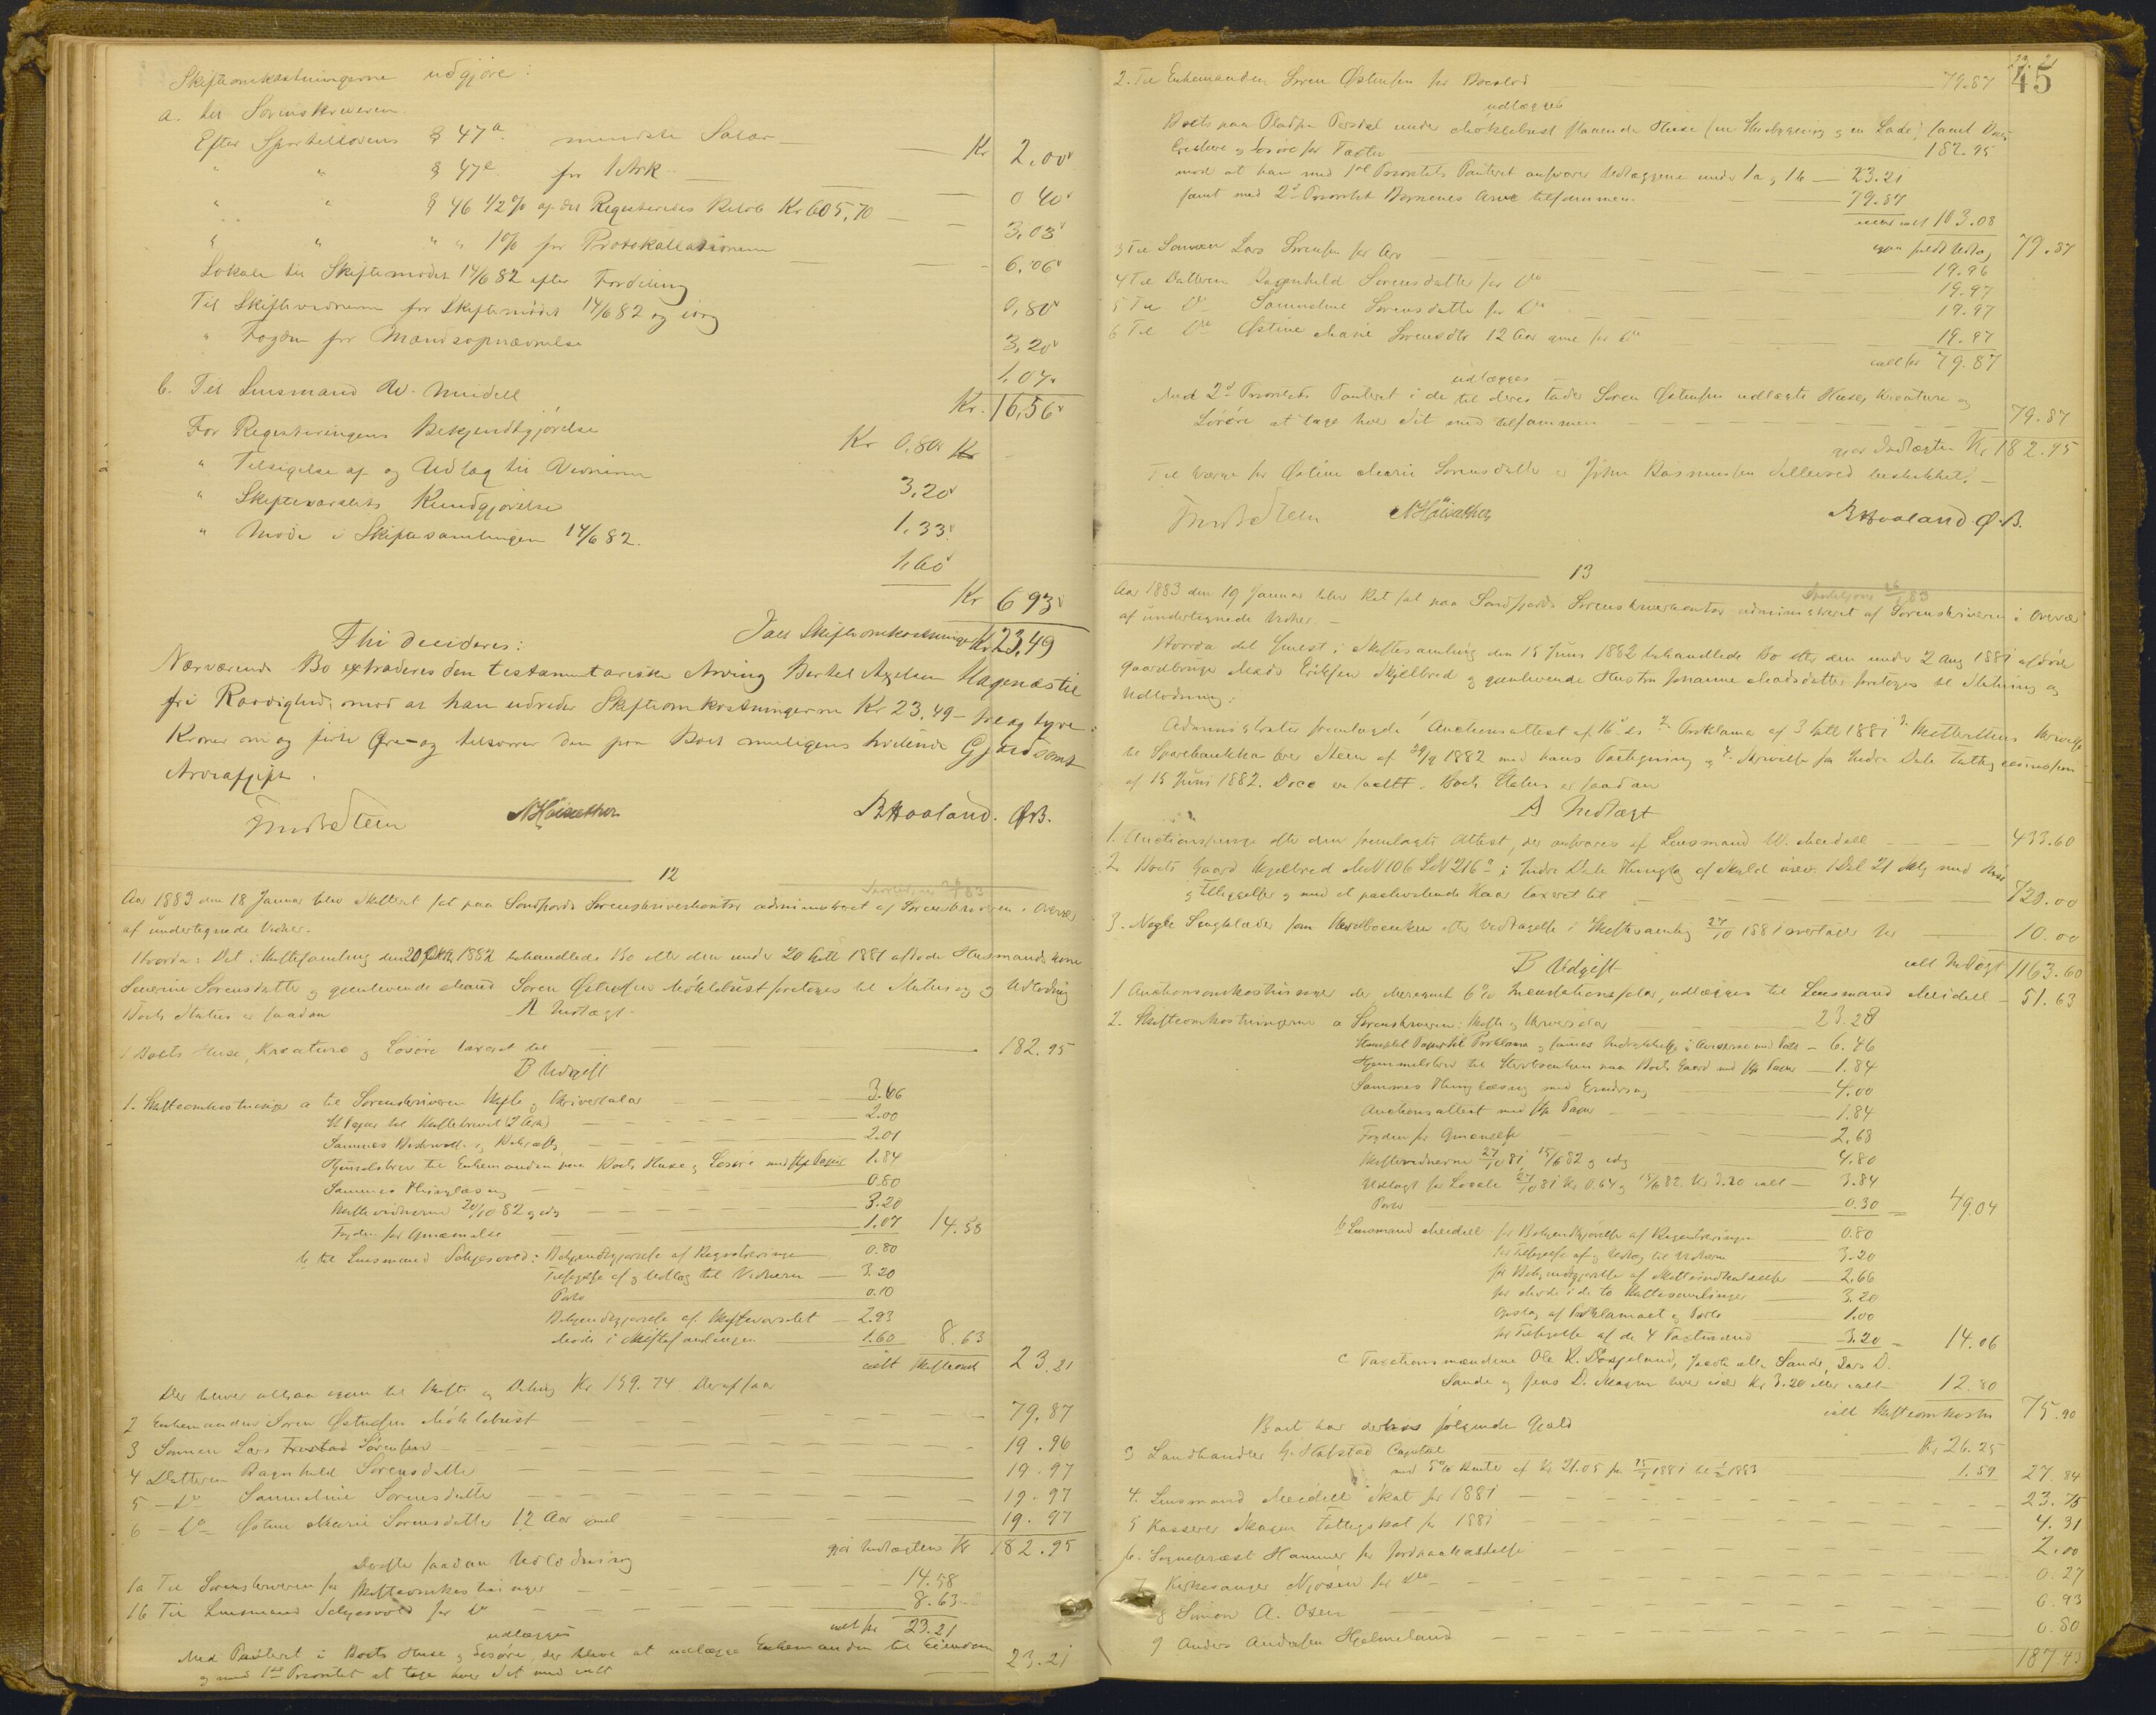 Skifteomkostningerne udgjøre:
a. til Sorenskriveren.
Efter Sportellovens § 47a. mindste Salar Kr 2.00
" " § 47e. for 1 Ark 0 40
" " § 46 1/2 % af det Registrerede Beløb Kr 605,70 3,03
" " " " 1% for Protokollationen 6,06
Lokale til Skiftemødet 14/6 82 efter Fordeling 0,80
Til Skiftevidnerne for Skiftemødet 14/6 82 og iørg 3,20
" Fogden for Mandsopnævnelse 1.07
Kr. 16,56
b. Til Lensmand W. Meidell
For Registreringens Bekjendtgjørelse Kr 0,80
" Tilsigelse af og Udlæg til Vidnerne 3,20
" Skiftevarslets Kundgjørelse 1,33
" Møde i Skiftesamlingen 14/6 82. 1,60
Kr 6 93
Ialt Skifteomkostninger Kr 23,49
Thi decideres:
Nærværende Bo extraderes den testamentariske Arving Bertel Axelsen Hagenæs til
fri Raadighed, mod at han udreder Skifteomkostningerne Kr 23,49 – tre og tyve
Kroner ni og firti Øre – og tilsvarer den paa Boet muligens hvilende Gjæld samt
Arveafgift.
N Høisæther B Haaland. Ø.B.
12
Aar 1883 den 18 Januar blev Skifteret sat paa Søndfjords Sorenskriverkontor administreret af Sorenskriveren i Overvær
af undertegnede Vidner.
Hvorda: Det i Skiftesamling den 20 Oktbr 1882 behandlede Bo efter den under 20 1881 afdøde Husmandskone
Severine Sørensdatter og gjenlevende Mand Søren Østensen Møklebust foretoges til Slutning og Udlodning
Boets Status er saadan A Indtægt.
1 Boets Huse, Kreature og Løsøre taxeret til 182.95
B Udgift
1. Skifteomkostninger a til Sorenskriveren Skifte og Skriversalar 3.66
St Papir til Skiftebrevet (2 Ark) 2.00
Sammes Beskrivelse og Bekræft 2.01
Hjemmelsbrev til Enkemanden paa Boets Huse og Løsøre med St Papir 1.84
Sammes Thinglæsning 0.80
Skiftevidnerne 20/10 82 og iørg 3.20
Fogden for Opnævnelse 1.07 14.58
b til Lensmand : Bekjendtgjørelse af Registreringen 0.80
Tilsigelse af og Udlæg til Vidnerne 3.20
Porto 0.10
Bekjendtgjørelse af Skiftevarslet 2.93
Møde i Skiftesamlingen 1.60 8.63
ialt Skifteomk 23.21
Der bliver altsaa igjen til Skifte og Deling Kr 159.74. Deraf faar
2 Enkemanden Søren Østensen Møklebust 79.87
3 Sønnen Lars Sørensen 19.96
4 Datteren Ragnhild Sørensdatter 19.97
5 — Do Samueline Sørensdatter 19.97
6 — Do Østine Marie Sørensdatter 12 Aar gml 19.97
gjør Indtægten Kr 182.95
Derefter saadan Udlodning
1a Til Sorenskriveren for Skifteomkostninger 14.58
1b Til Lensmand for Do 8.63
ialt for 23.21
udlægges
Med Panteret i Boets Huse og Løsøre, der blive at udlægge Enkemanden til Eiendom
og med 1ste Prioritet at tage hver Sit med ialt 23.21
45
2. Til Enkemanden Søren Østensen for Boeslod 79.87
udlægges
Boets paa Pladsen under Møklebust staaende Huse (en Stuebygning og en Lade) samt Boets
Creature og Løsøre for Taxten 182.95
mod at han med 1ste Prioritets Panteret ansvarer Udlæggene under 1a og 1b 23.21
samt med 2d Prioritet Børnenes Arve tilsammen 79.87
103.08
79.87
3 Til Sønnen Lars Sørensen for Arv 19.96
4 Til Datteren Ragnhild Sørensdatter for Do 19.97
5 Til Do Samueline Sørensdatter for Do 19.97
6 Til Do Østine Marie Sørensdtr 12 Aar gml for Do 19.97
ialt for 79.87
udlægges
Med 2d Prioritets Panteret i de til deres Fader Søren Østensen udlagte Huse, Kreature og
Løsøre at tage hver Sit med tilsammen 79.87
gjør Indtægten Kr 182.95
Til Værge for Østine Marie Sørensdatter er John Rasmussen beskikket.
N Høisæther B Haaland. Ø.B.
13
Aar 1883 den 19 Januar blev Ret sat paa Søndfjords Sorenskriverkontor administreret af Sorenskriveren i Overvær
af undertegnede Vidner. –
Hvorda det senest i Skiftesamling den 15 Juni 1882 behandlede Bo efter den under 2 Aug 1881 afdøde
Gaardbruger Mads Eriksen Skjelbred og gjenlevende Hustru Johanne Madsdatter foretoges til Slutning og
Udlodning:
Administrator fremlagde 1 Auctionsattest af 16 ds 2 Proklama af 3 1881 3. Skifterettens Skrivelse
til Sparebankkasserer Steen af 29/9 1882 med hans Paategning og 4. Skrivelse fra Indre Dale Fattigcommission
af 15 Juni 1882. Boets Status er saadan
A Indtægt
1. Auctionspenge efter den fremlagte Attest, der ansvares af Lensmand W. Meidell 433.60
2. Boets Gaard Skjelbred MN 106 LN 216a i Indre Dale Thinglag af Skyld 1 Dal. 21 med Huse
og Tilliggelser og med et paahvilende Kaar taxeret til 720.00
3. Nogle Sengklæder som Stervboenken efter Vedtagelse i Skiftesamling 27/10 1881 overtager for 10.00
ialt Indtægt 1163.60
B Udgift
1 Auctionsomkostninger der iberegnet 6% Incassationssalar, udlægges til Lensmand Meidell 51.63
2. Skifteomkostningerne a Sorenskriveren: Skifte og Skriversalar 23.28
Stemplet Papir til Proklama og sammes Indrykkelse i Aviserne med Porto 6.46
Hjemmelsbrev til Stervboenken paa Boets Gaard med St Papir 1.84
Sammes Thinglæsning med 4.00
Auctionsattest med St Papir 1.84
Fogden for Opnævnelse 2.68
Skiftevidnerne 27/10 81 15/6 82 og iørg 4.80
Udlagt for Locale 27/10 81 Kr 0.64 og 15/6 82 Kr 3.20 ialt 3.84
Porto 0.30 49.04
b Lensmand Meidell for Bekjendtgjørelse af Registreringen 0.80
for Tilsigelse af og Udlæg til Vidnerne 3.20
for Bekjendtgjørelse af Skifteindkaldelser 2.66
for Møde i de to Skiftesamlinger 3.20
Opslag af Proklamaet og Porto 1.00
for Tilsigelse af de 4 Taxtmænd 3.20 14.06
c Taxationsmændene Ole R. , Sande, Lars D.
Sande og Jens D. Skagen hver især Kr 3.20 eller ialt 12.80
ialt Skifteomkostn 75.90
Boet har derhos følgende Gjæld
3 Landhandler G. Hafstad Capital Kr 26.25
med 5% Rente af Kr 21.05 fra 1881 til 1883 1.59 27.84
4. Lensmand Meidell Skat for 1881 23.75
5 Kasserer Skagen Fattigskat for 1881 4.31
6. Sogneprest Hammer for Jordpaakastelse 2.00
7 Kirkesanger Njøsen for Do 0.27
8 Simon A. Osen 0.93
9 Anders Andersen Hjelmeland 0.80
187 43